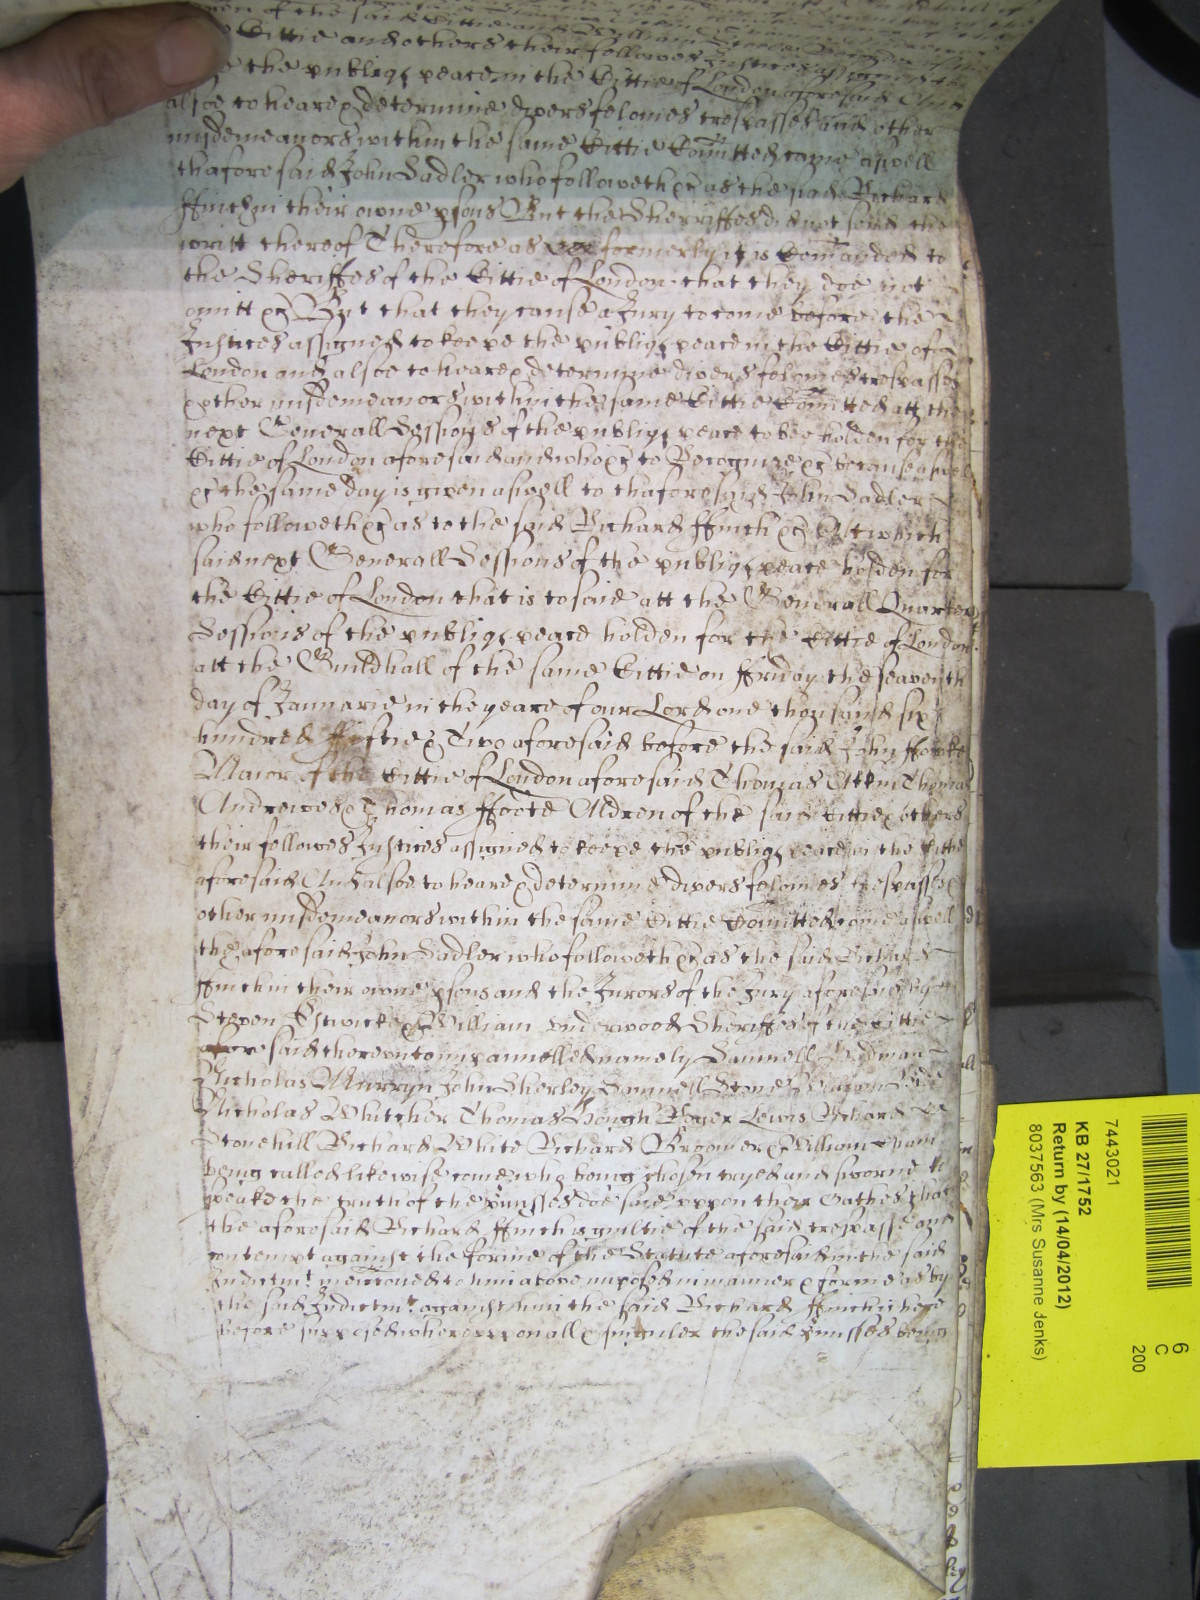 of the said Cittie and William
Cittie and others their fellowes Justices assigned to
the publiq peace in the Cittie of London aforesaid And
alsoe to heare & determine divers felonies trespasses and other
misdemeanors within the same Cittie Comitted came aswell
thaforesaid John Sadler who followeth &c as the said Richard
Ffinch in their owne psons But the Sherriffes did not send the
writt thereof Therefore as formerly it is Comanded to
the Sheriffes of the Cittie of London that they doe not
omitt &c But that they cause a Jury to come before the
Justices assigned to keepe the publiq peace in the Cittie of
London and alsoe to heare & determine divers felonies trespasses
& other misdemeanors within the same Cittie Comitted att the
next Generall Sessions of the publiq peace to bee holden for the
Cittie of London aforesaid and who &c to Recognize &c because aswell
&c the same day is given aswell to thaforesaid John Sadler
who followeth &c as to the said Richard Ffinch &c Att which
said next Generall Sessions of the publiq peace holden for
the Cittie of London that is to saie att the Generall Quarter
Sessions of the publiq peace holden for the Cittie of London
att the Guildhall of the same Cittie on Ffriday the seaventh
day of Januarie in the yeare of our Lord one thousand six
hundred Ffiftie & Two aforesaid before the said John Ffowke
Maior of the Cittie of London aforesaid Thomas Atkin Thomas
Andrewes & Thomas Ffoote Aldren of the said Cittie & others
their fellowes Justices assigned to keepe the publiq peace in the Cittie
aforesaid And alsoe to heare & determine divers felonies trespasses &
other misdemeanors within the same Cittie Comitted come aswell
the aforesaid John Sadler who followeth &c as the said Richard
Ffinch in their owne psons and the Jurors of the Jury aforesaid by
Steven Estwicke & William Underwood Sheriffes of the Cittie
aforesaid thereunto impannelled namely Samuell
Nicholas Murryn John Sherley Samuell Stone
Nicholas Whitcher Thomas Hough Roger Lewis Richard
Stonehill Richard White Richard Groomer & William
being called likewise come who being chosen tryed and sworne to
speake the truth of the pmisses doe saie uppon their Oathes that
the aforesaid Richard Ffinch is guiltie of the said trespasse and
contempt against the forme of the Statute aforesaid in the said
Indictmt mencioned to him above imposed in manner & forme as by
the said Indictmt against him the said Richard Ffinch it is
before supposed whereuppon all & singuler the said pmisses being
7443021
KB 27/1752
Return by (14/04/2012)
8037563 (Mrs Susanne Jenks)
6
C
200